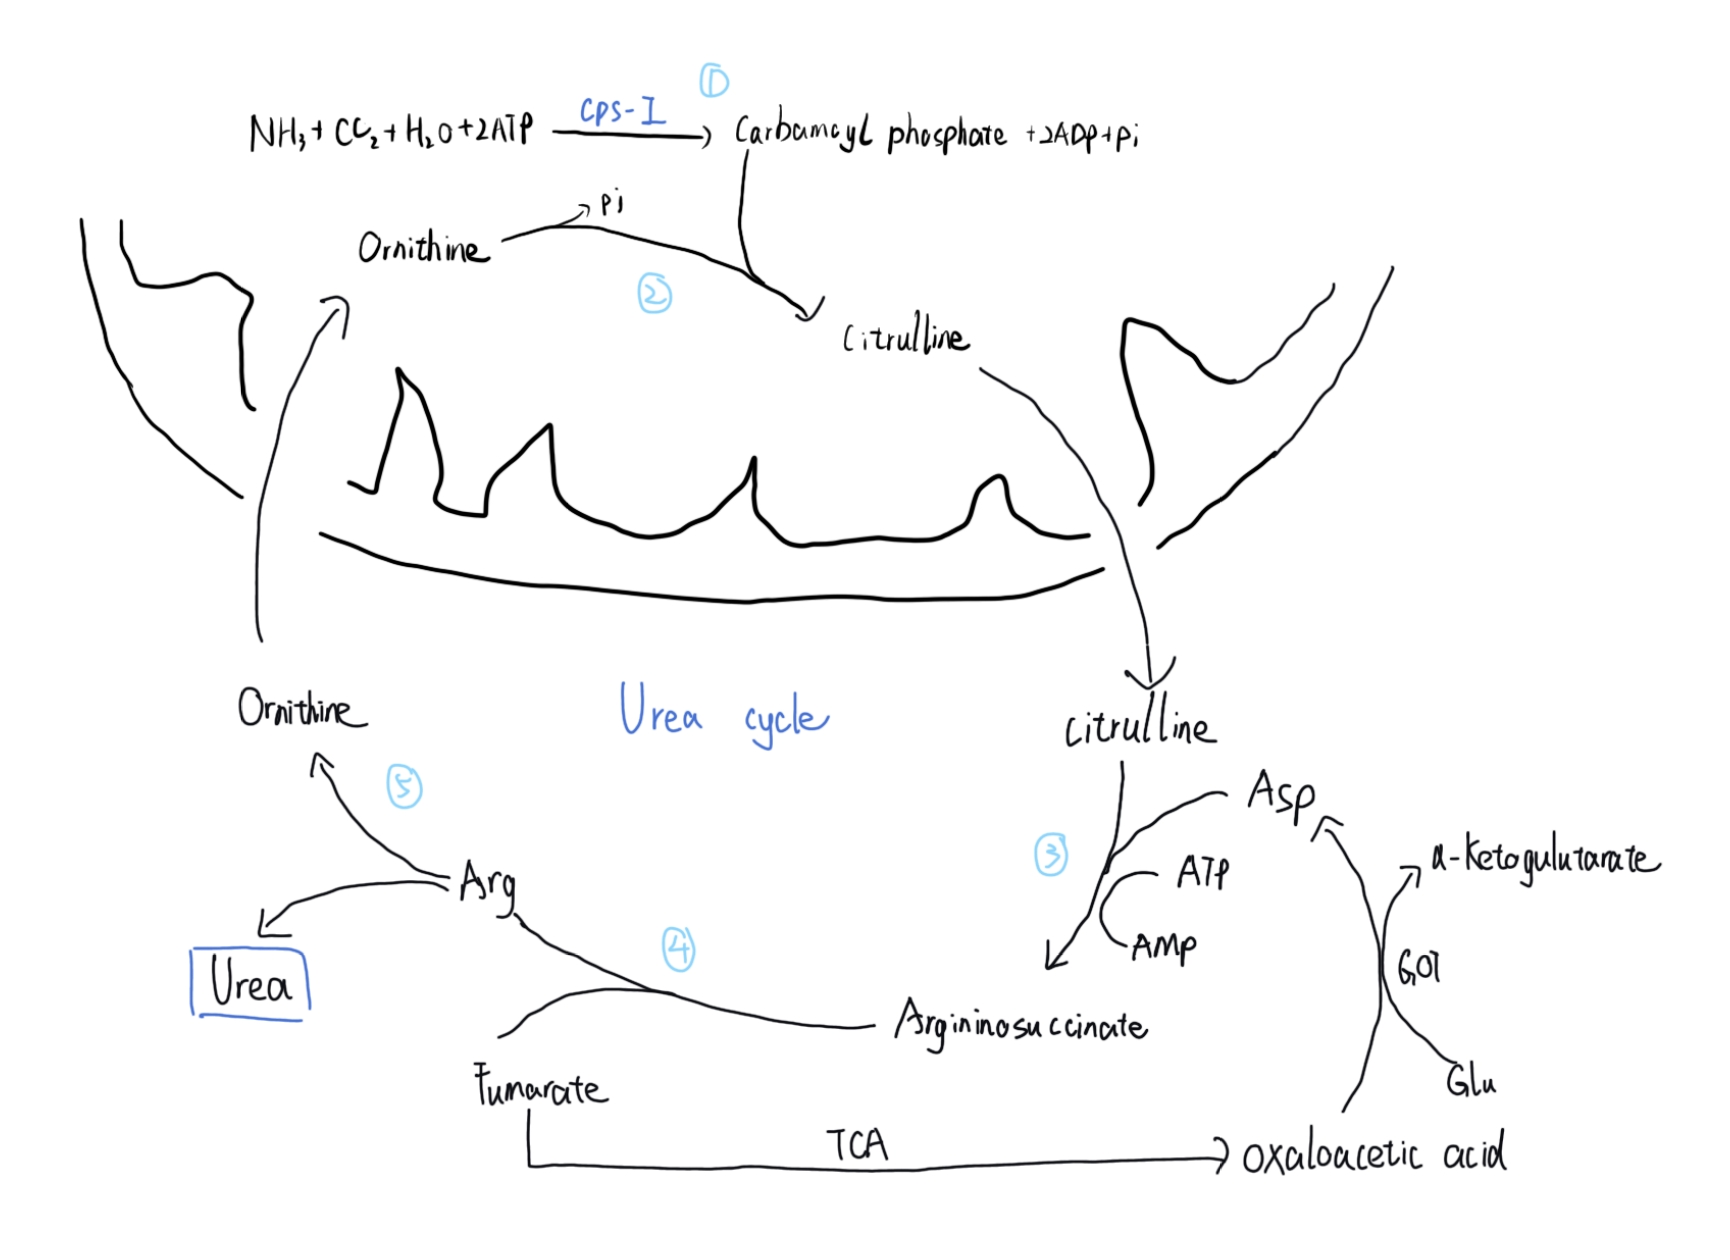 ①
CPS-I
NH₃ + CO₂ + H₂O + 2ATP → Carbamoyl phosphate + 2ADP + Pi
Pi
Ornithine
②
Citrulline
Ornithine
Urea cycle
Citrulline
⑤
Asp
③
α-Ketogulutarate
ATP
Arg
④
AMP
GOT
Urea
Argininosuccinate
Fumarate
Glu
TCA
oxaloacetic acid